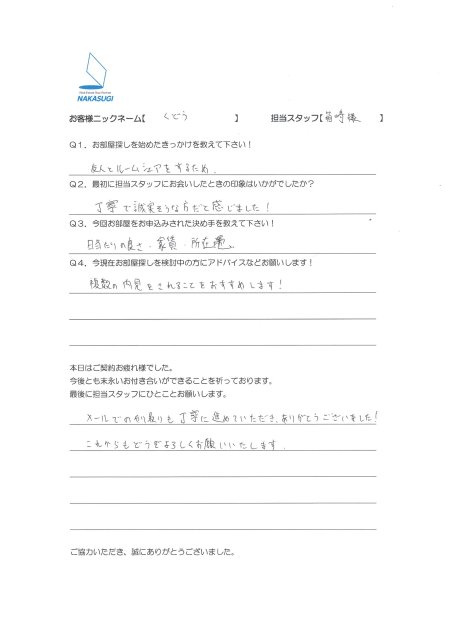 NAKASUGI
お客様ニックネーム【 くどう 】 担当スタッフ【 箱崎様 】
Q1、お部屋探しを始めたきっかけを教えて下さい！
友人とルームシェアをするため.
Q2、最初に担当スタッフにお会いしたときの印象はいかがでしたか？
丁寧で誠実そうな方だと感じました！
Q3、今回お部屋をお申込みされた決め手を教えて下さい！
日当たりの良さ・家賃・所在地
Q4、今現在お部屋探しを検討中の方にアドバイスなどお願いします！
複数の内見をされることをおすすめします！
本日はご契約お疲れ様でした。
今後とも末永いお付き合いができることを祈っております。
最後に担当スタッフにひとことお願いします。
メールでのやり取りも丁寧に進めていただき、ありがとうございました！
これからもどうぞよろしくお願いいたします.
ご協力いただき、誠にありがとうございました。